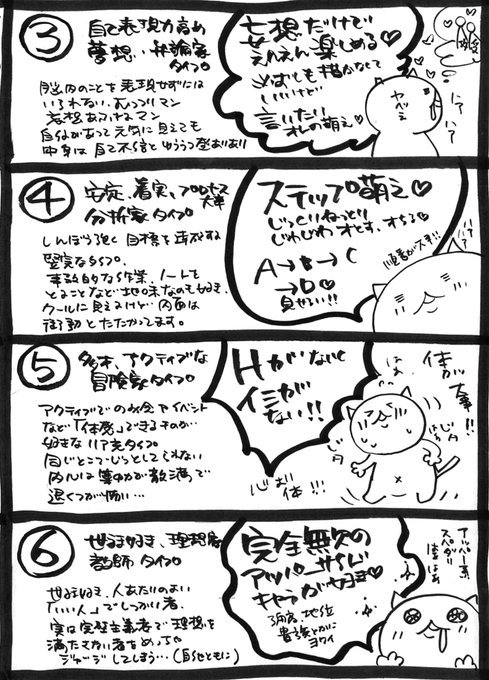 ③
自己表現力高め
夢想、弁論家
タイプ
脳内のことを表現せずには
いられない、むっつりマン
妄想あふれるマン
自信があって元気に見えても
中身は自己不信とゆううつ登ありあり
妄想だけで
ぜんぜん楽しめる
めばしも描かなくて
いいけど
言いたい
オレの萌え♡
ヤベェ
にて
いて
④
安定、着実、プロセス大事
分析家タイプ
しんぼう強く目標を達成する
堅実なタイプ。
事務的な作業、ノートを
とることなど地味なのも好き。
クールに見えるけど内面は
衝動とたたかってます。
ステップ萌え♡
じっくりねっとり
じわじわオとす、オちる♡
A→B→C
→D♡
見せろい!!
順番が大事!!
⑤
アクティブな
冒険家タイプ
アクティブでのみ会やイベント
など「体感」できるものが
好きなリア充タイプ
同じところでじっとしてられない
内心は集中力が散漫で
退くつが怖い…
Hがないと
イミが
ない!!
体が
大事!!
はぁ
ジタ
バタ
体!!
⑥
世話好き、理想家
教師タイプ
世話好き、人あたりのよい
「いい人」でしっかり者、
実は完全主義者で理想を
満たさない者をめっちゃ
ジャッジしてしまう…(自他ともに)
完全無欠の
アッパーサイド
キャラが好き♡
地位
貴族とかに
ヨワイ
アッパー系
スパダリ